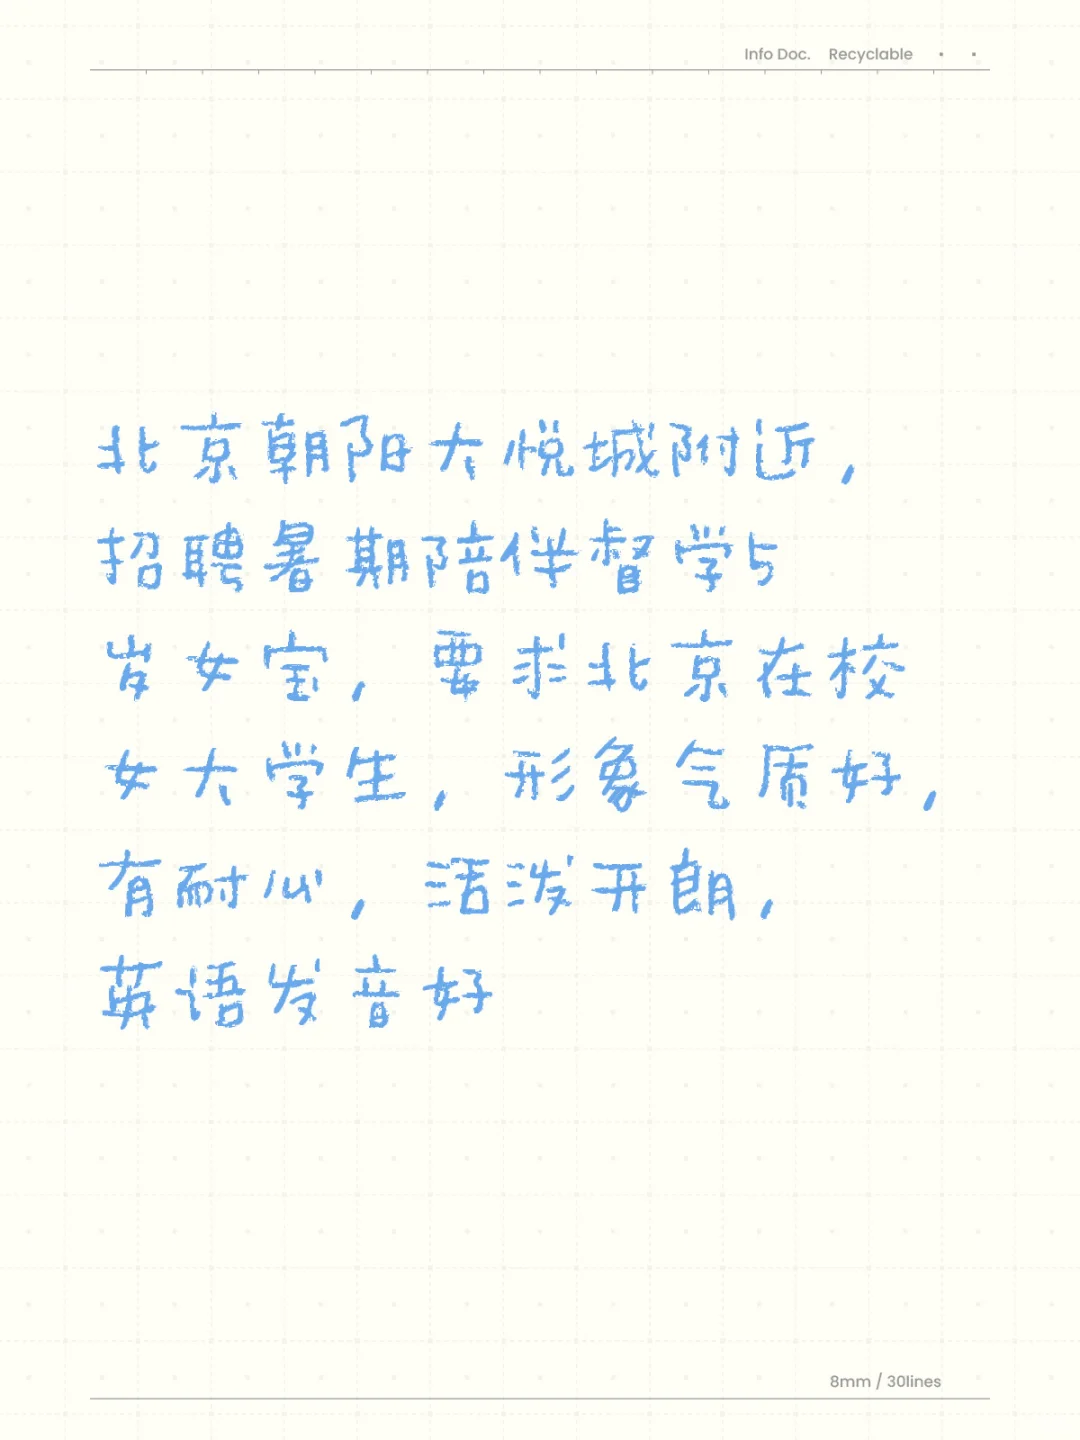 Info Doc. Recyclable • •
北京朝阳大悦城附近，
招聘暑期陪伴督学5
岁女宝，要求北京在校
女大学生，形象气质好，
有耐心，活泼开朗，
英语发音好
8mm / 30lines